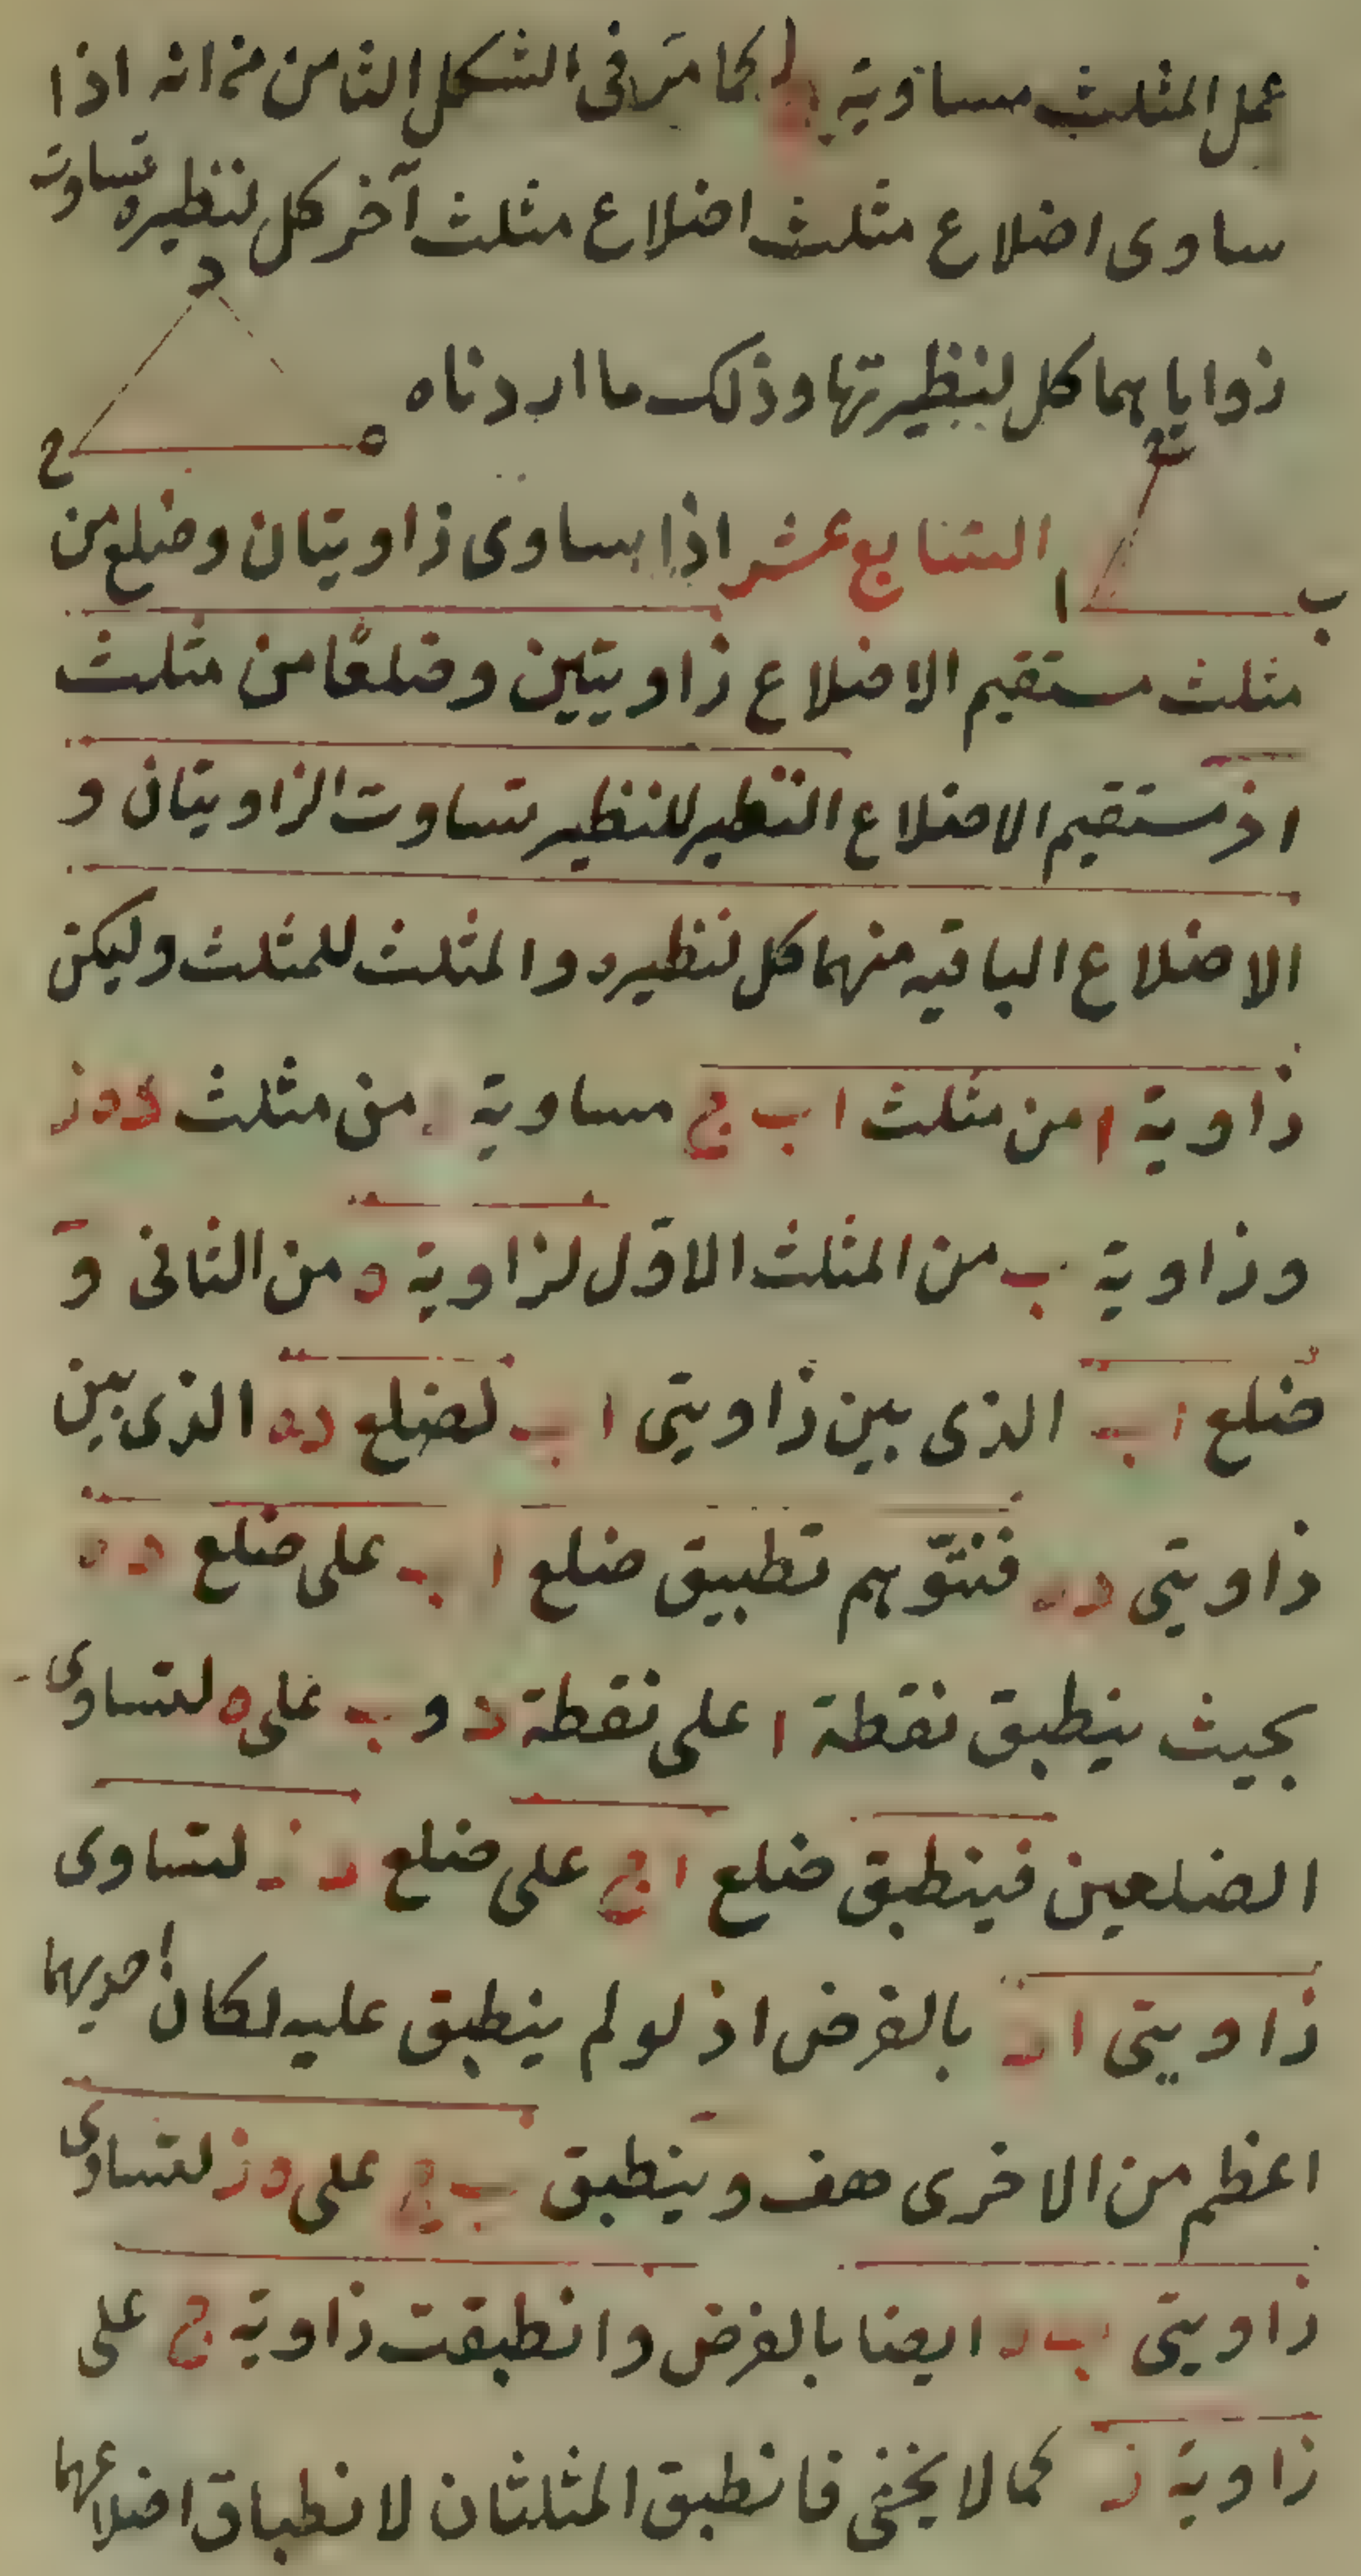 عمل المثلث مساوية لما مرّ فى الشكل الثامن من انه اذا
ساوى اضلاع مثلث اضلاع مثلث آخر كل لنظيره تساوت
د
زواياهما كل لنظيرتها وذلك ما اردناه
ح ه
ا ب
السابع عشر اذا ساوى زاويتان وضلع من
مثلث مستقيم الاضلاع زاويتين وضلعًا من مثلث
اخر مستقيم الاضلاع النظير للنظير تساوت الزاويتان و
الاضلاع الباقيه منهما كل لنظيره والمثلث للمثلث وليكن
زاوية ا من مثلث ا ب ج مساوية من مثلث د ه ز
وزاوية ب من المثلث الاوّل لزاوية ه من الثانى و
ضلع ا ب الذى بين زاويتى ا ب لضلع د ه الذى بين
زاويتى د ه فنتوّهم تطبيق ضلع ا ب على ضلع د ه
بحيث ينطبق نقطة ا على نقطة د و ب على ه لتساوى
الضلعين فينطبق ضلع ا ج على ضلع د ز لتساوى
زاويتى ا د بالفرض اذ لو لم ينطبق عليه لكان احديهما
اعظم من الاخرى هف وينطبق ب ج على ه ز لتساوى
زاويتى ب ه ايضا بالفرض وانطبقت زاوية ج على
زاوية ز كما لا يخفى فانطبق المثلثان لانطباق اضلاعهما